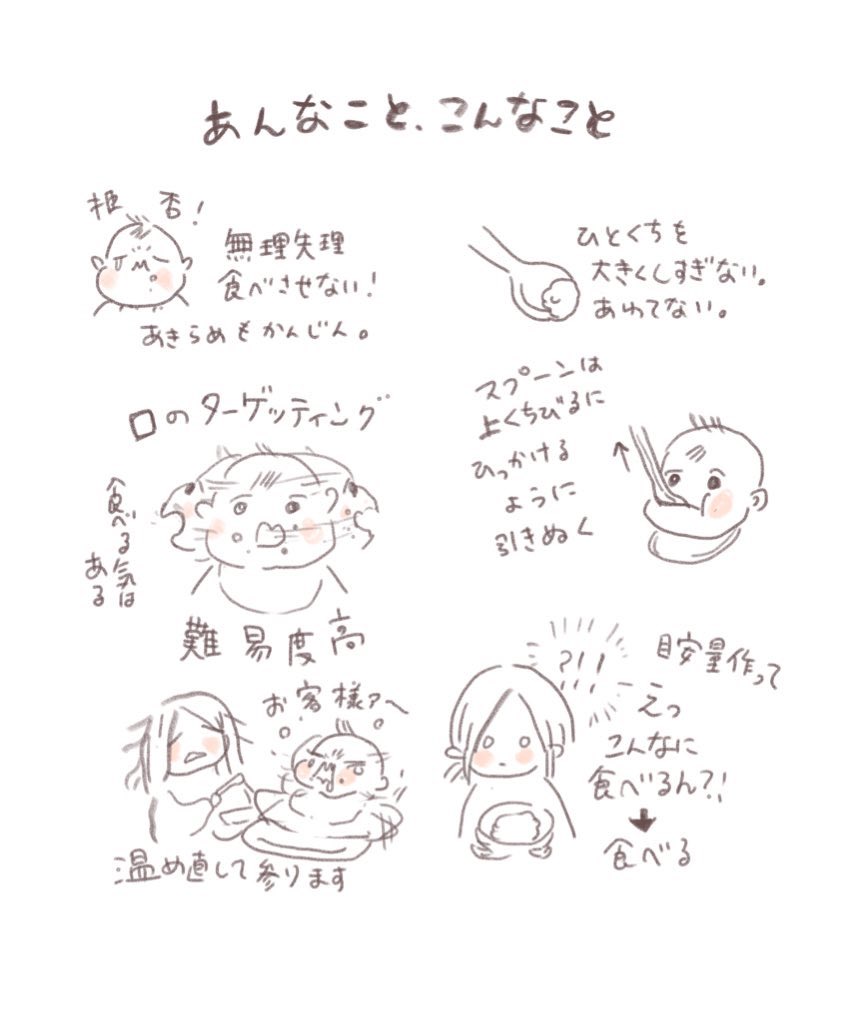 あんなこと、こんなこと
拒否!
無理矢理
食べさせない!
あきらめもかんじん。
ひとくちを
大きくしすぎない。
あわてない。
口のターゲッティング
食べる気は
ある
難易度高
スプーンは
上くちびるに
ひっかける
ように
引きぬく
お客様ァ〜
温め直して参ります
?!!
目安量作って
えっ
こんなに
食べるん?!
↓
食べる